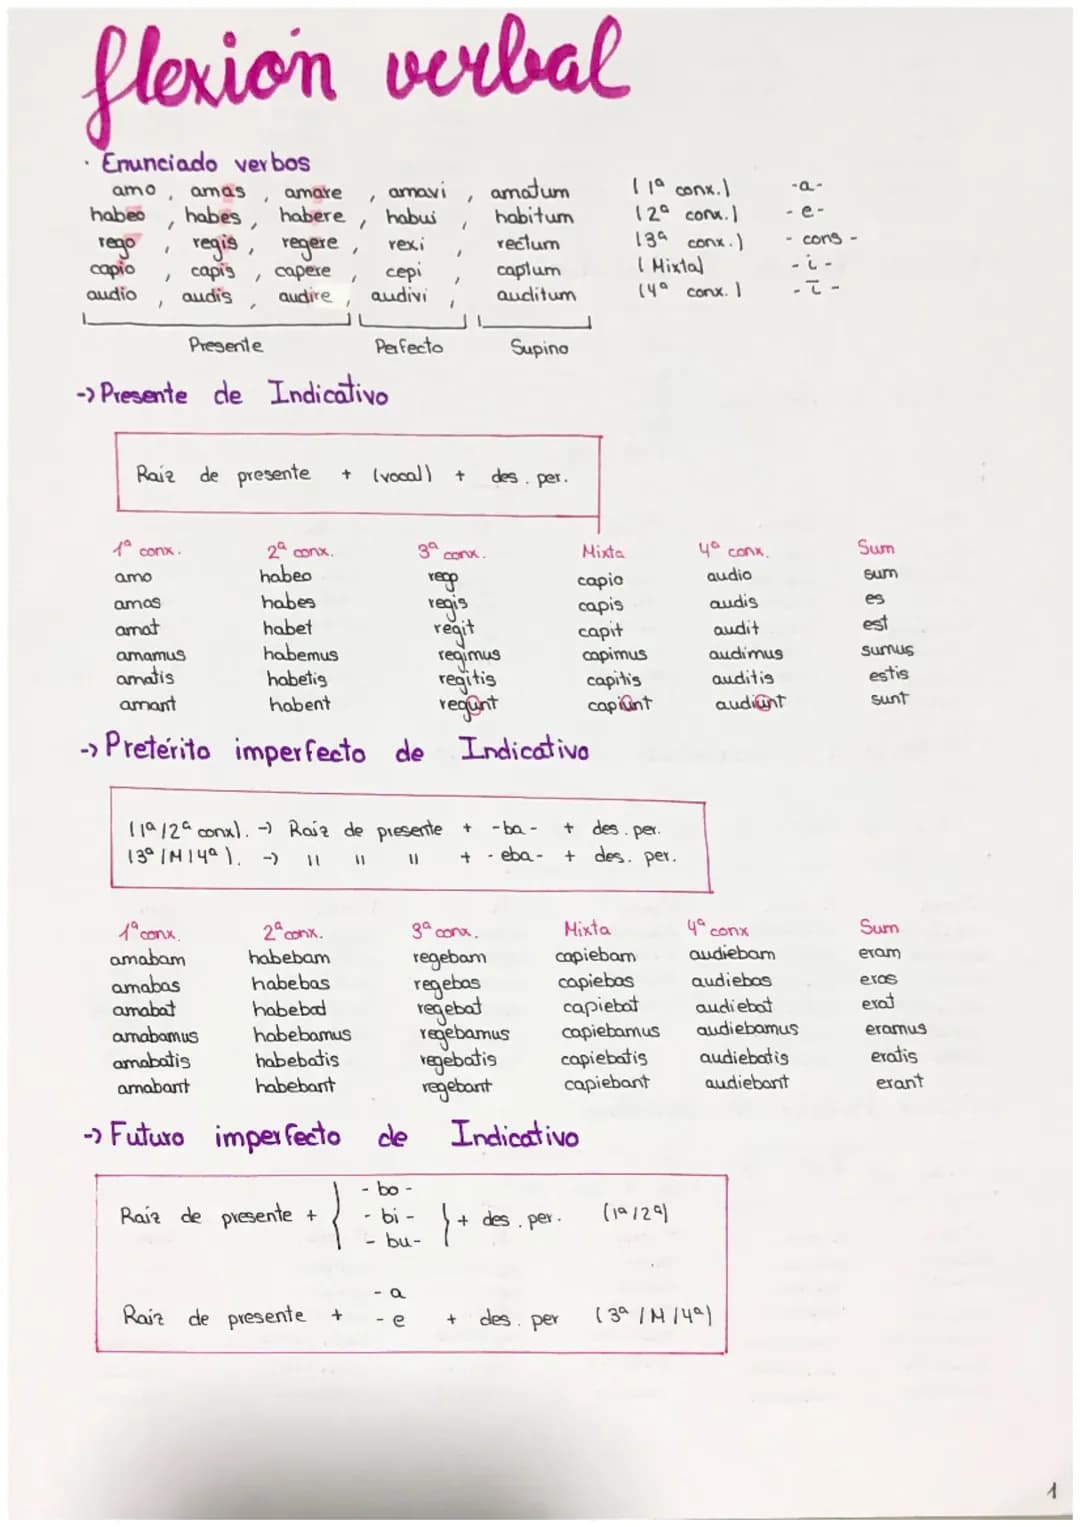 flexión verbal
· Enunciado verbos
amo , amas , amare , amavi , amatum (1ª conx.) -a-
habeo , habes , habere , habui , habitum (2ª conx.) -e-
rego , regis , regere , rexi , rectum (3ª conx.) - cons -
capio , capis , capere , cepi , captum (Mixta) -i-
audio , audis , audire , audivi , auditum (4ª conx.) -ī-
Presente Perfecto Supino
-> Presente de Indicativo
Raiz de presente + (vocal) + des. per.
1ª conx. 2ª conx. 3ª conx. Mixta 4ª conx. Sum
amo habeo rego capio audio sum
amas habes regis capis audis es
amat habet regit capit audit est
amamus habemus regimus capimus audimus sumus
amatis habetis regitis capitis auditis estis
amant habent regunt capiunt audiunt sunt
-> Pretérito imperfecto de Indicativo
(1ª/2ª conx). -> Raiz de presente + -ba- + des. per.
(3ª/M/4ª). -> " " " + -eba- + des. per.
1ª conx. 2ª conx. 3ª conx. Mixta 4ª conx Sum
amabam habebam regebam capiebam audiebam eram
amabas habebas regebas capiebas audiebas eras
amabat habebad regebat capiebat audiebat erat
amabamus habebamus regebamus capiebamus audiebamus eramus
amabatis habebatis regebatis capiebatis audiebatis eratis
amabant habebant regebant capiebant audiebant erant
-> Futuro imperfecto de Indicativo
- bo -
Raiz de presente + { - bi - } + des. per. (1ª/2ª)
- bu-
- a
Raiz de presente + - e + des. per (3ª/M/4ª)
1